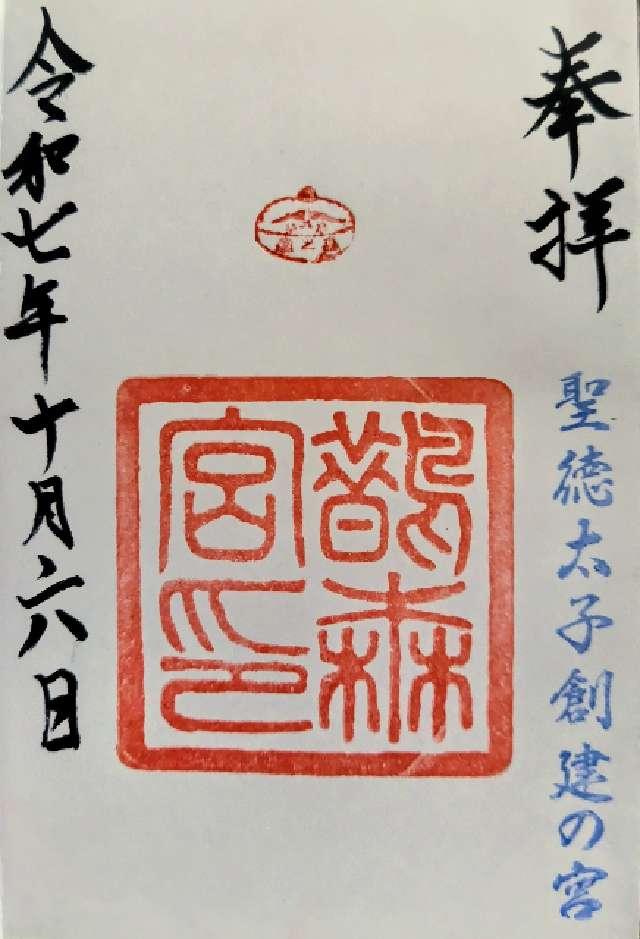 奉拝
聖徳太子創建の宮
鵲森
宮印
令和七年十月六日